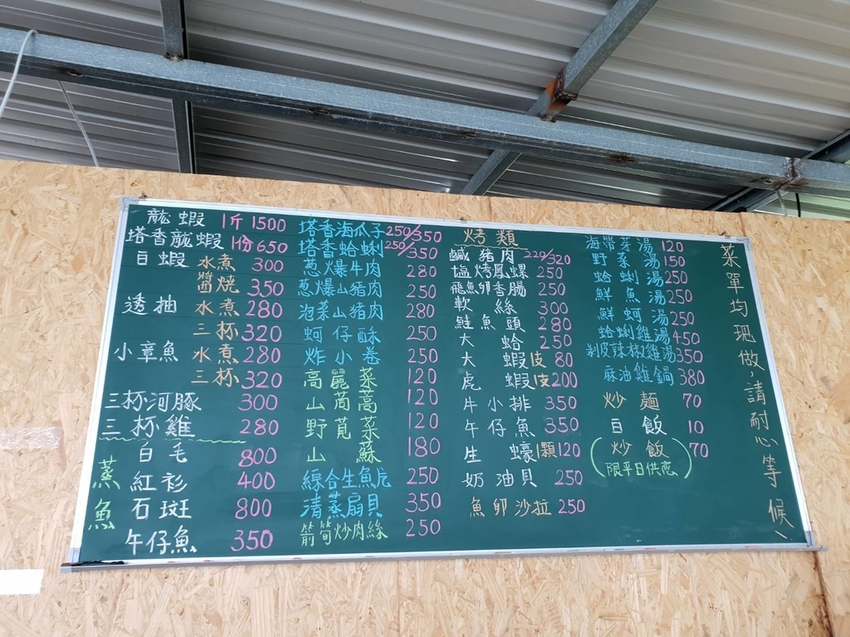 龍蝦 1斤 1500
塔香龍蝦 1份 650
白蝦 水煮 300
醬燒 350
透抽 水煮 280
三杯 320
小章魚 水煮 280
三杯 320
三杯河豚 300
三杯雞 280
蒸魚
白毛 800
紅衫 400
石斑 800
午仔魚 350
塔香海瓜子 250/350
塔香蛤蜊 250/350
蔥爆牛肉 280
蔥爆山豬肉 250
泡菜山豬肉 280
蚵仔酥 250
炸小卷 250
高麗菜 120
山茼蒿 120
野莧菜 120
山蘇 180
綜合生魚片 250
清蒸扇貝 350
箭筍炒肉絲 250
烤類
鹹豬肉 220/320
塩烤鳳螺 250
飛魚卵香腸 250
軟絲 300
鮭魚頭 280
大蛤 250
大蝦 1支 80
虎蝦 1支 200
牛小排 350
午仔魚 350
生蠔 1顆 120
奶油貝 250
魚卵沙拉 250
海帶芽湯 120
野菜湯 150
蛤蜊湯 250
鮮魚湯 250
鮮蚵湯 250
蛤蜊雞湯 450
剝皮辣椒雞湯 350
麻油雞鍋 380
炒麵 70
白飯 10
(炒飯) 70
限平日供應
菜單均現做,請耐心等候!